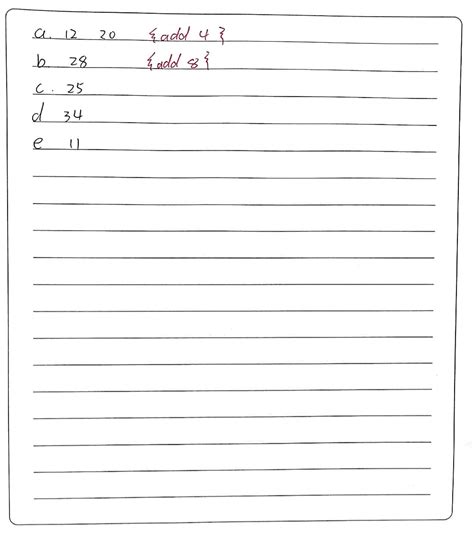 a. 12 20 {add 4}
b. 28 {add 8}
c. 25
d 34
e 11